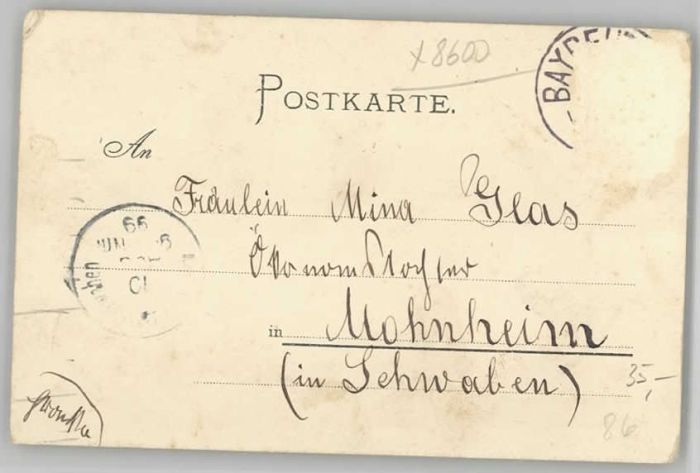 x 8600
BAYREU
POSTKARTE.
An
Fräulein Mina Glas
Ökonomstochter
in Mohnheim
(in Schwaben)
35,-
86